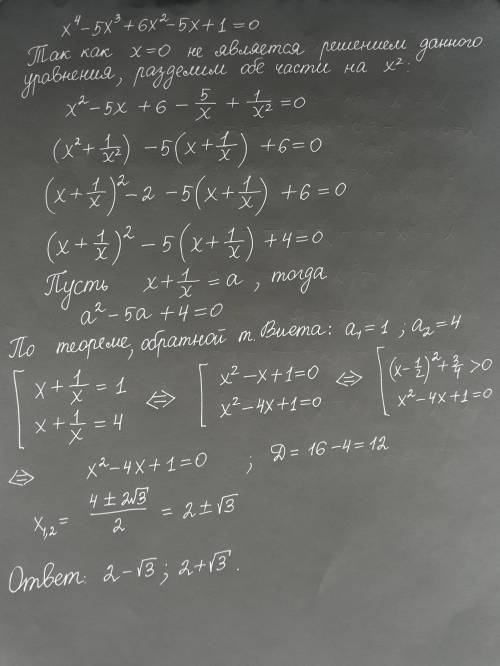 x⁴-5x³+6x²-5x+1=0
Так как x=0 не является решением данного
уравнения, разделим обе части на x²:
x²-5x+6-5/x+1/x²=0
(x²+1/x²)-5(x+1/x)+6=0
(x+1/x)²-2-5(x+1/x)+6=0
(x+1/x)²-5(x+1/x)+4=0
Пусть x+1/x=a, тогда
a²-5a+4=0
По теореме, обратной т. Виета: a₁=1; a₂=4
[x+1/x=1 ⇔ [x²-x+1=0 ⇔ [(x-1/2)²+3/4>0
x+1/x=4 x²-4x+1=0 x²-4x+1=0
⇔ x²-4x+1=0; Д=16-4=12
x₁,₂=(4±2√3)/2=2±√3
Ответ: 2-√3; 2+√3.